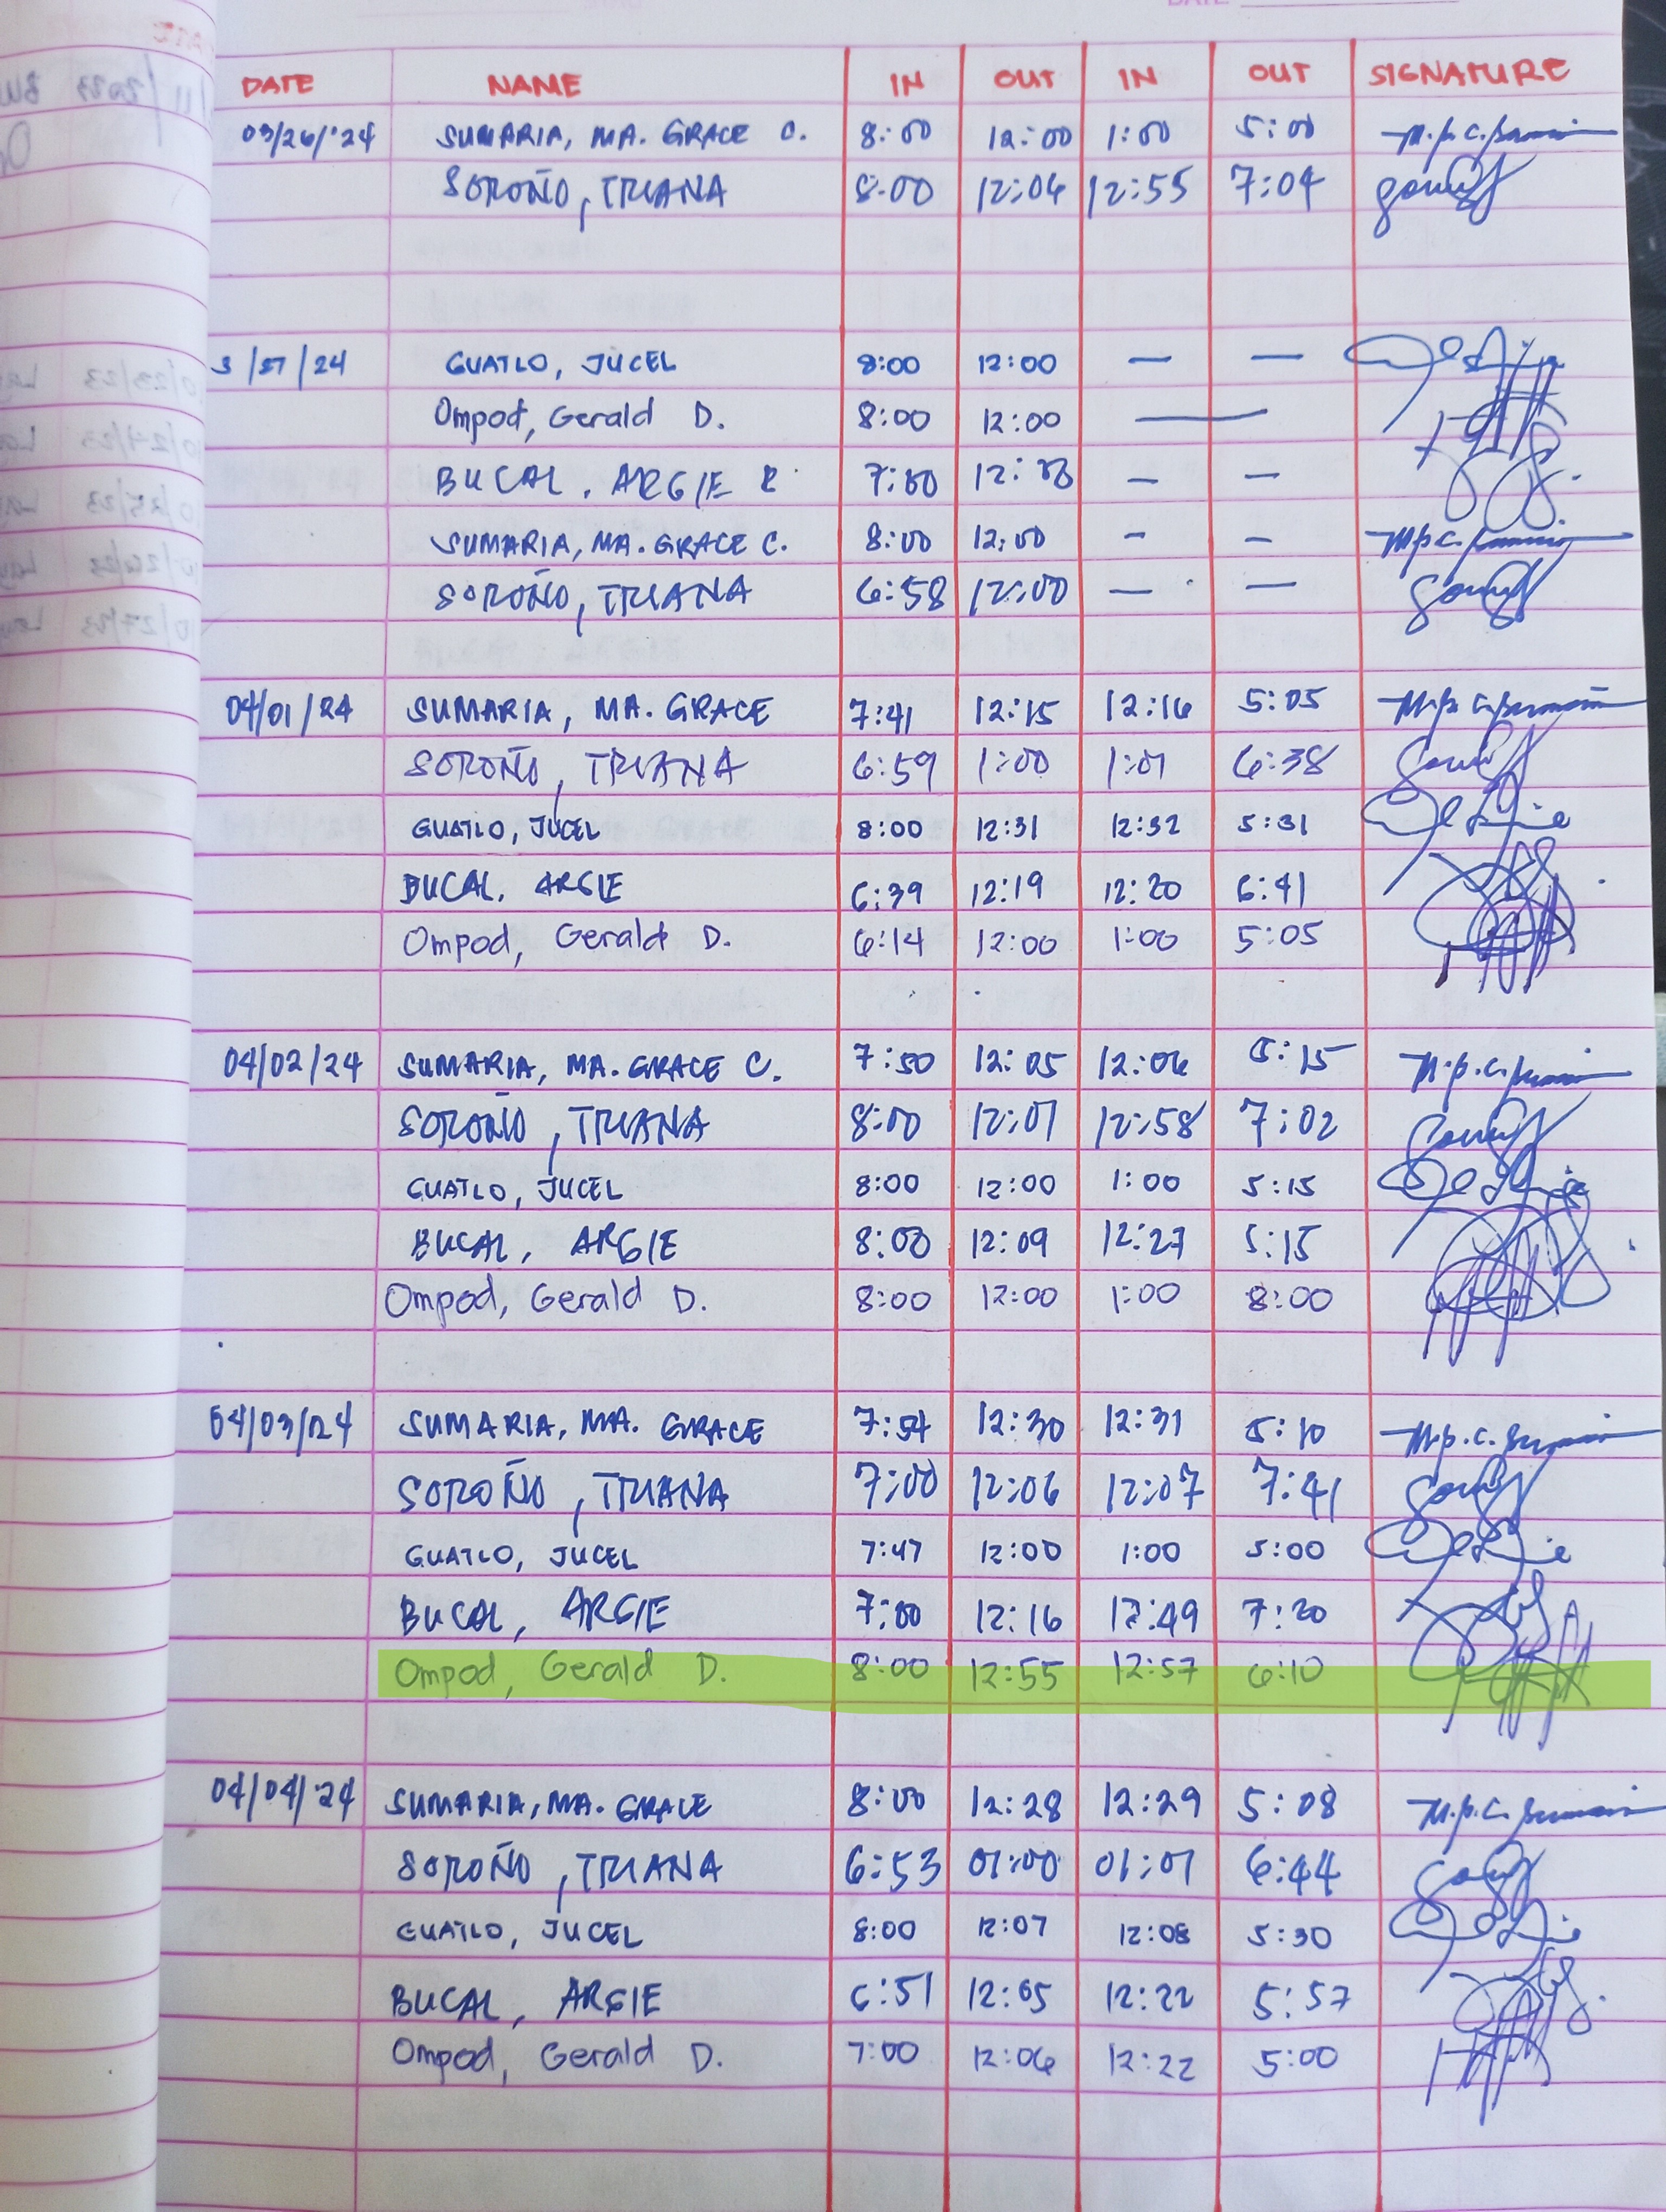 DATE
DATE NAME IN OUT IN OUT SIGNATURE
03/26/'24 SUMARIA, MA. GRACE C. 8:00 12:00 1:00 5:00
SOROÑO, TRIANA 8:00 12:04 12:55 7:04
3/27/24 GUATLO, JUCEL 8:00 12:00 — —
Ompod, Gerald D. 8:00 12:00 —
BUCAL, ARGIE R 7:00 12:00 — —
SUMARIA, MA. GRACE C. 8:00 12:00 - -
SOROÑO, TRIANA 6:58 12:00 — —
04/01/24 SUMARIA, MA. GRACE 7:41 12:15 12:16 5:05
SOROÑO, TRIANA 6:59 1:00 1:01 6:38
GUATLO, JUCEL 8:00 12:31 12:32 5:31
BUCAL, ARGIE 6:39 12:19 12:20 6:41
Ompod, Gerald D. 6:14 12:00 1:00 5:05
04/02/24 SUMARIA, MA. GRACE C. 7:50 12:05 12:06 5:15
SOROÑO, TRIANA 8:00 12:01 12:58 7:02
GUATLO, JUCEL 8:00 12:00 1:00 5:15
BUCAL, ARGIE 8:00 12:09 12:27 5:15
Ompod, Gerald D. 8:00 12:00 1:00 8:00
04/03/24 SUMARIA, MA. GRACE 7:54 12:30 12:31 5:10
SOROÑO, TRIANA 7:00 12:06 12:07 7:41
GUATLO, JUCEL 7:47 12:00 1:00 5:00
BUCAL, ARGIE 7:00 12:16 12:49 7:20
Ompod, Gerald D. 8:00 12:55 12:57 6:10
04/04/'24 SUMARIA, MA. GRACE 8:00 12:28 12:29 5:08
SOROÑO, TRIANA 6:53 01:00 01:01 6:44
GUATLO, JUCEL 8:00 12:07 12:08 5:30
BUCAL, ARGIE 6:51 12:05 12:22 5:57
Ompod, Gerald D. 7:00 12:06 12:22 5:00